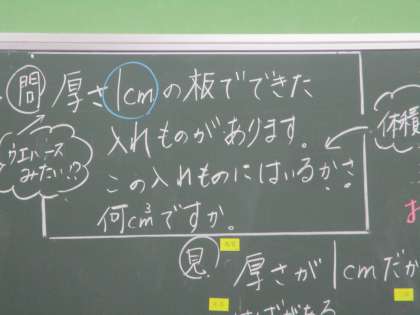 問 厚さ1cmの板でできた
入れものがあります。
この入れものにはいるかさは
何cm³ですか。
ウエハース
みたい!?
体積
見 厚さが1cmだか